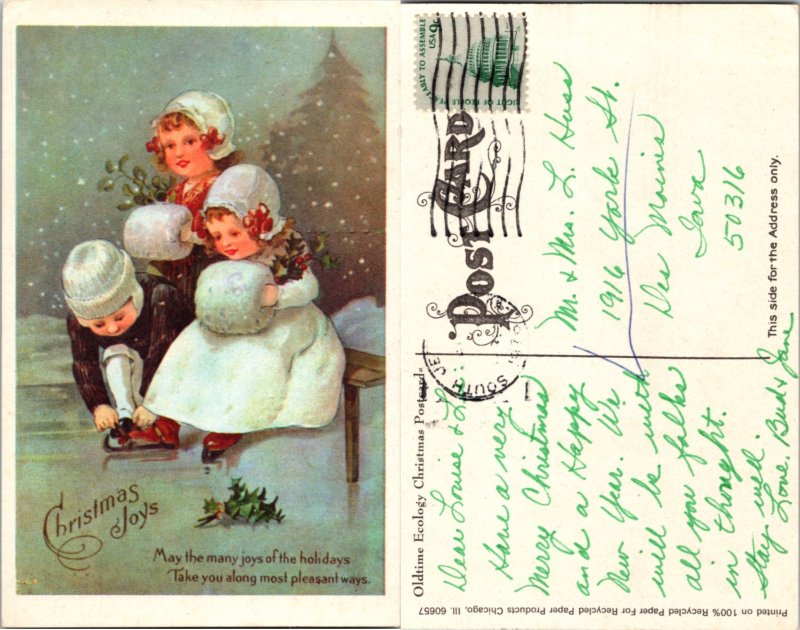 Christmas
Joys
May the many joys of the holidays
Take you along most pleasant ways.
USA 9c
ABLY TO ASSEMBLE
RIGHT OF PEOPLE PEA
POST CARD
SOUTH
Oldtime Ecology Christmas Postcards
Dear Louise &
Have a very
Merry Christmas
and a Happy
New Year. We
will be with
all you folks
in thought.
Stay well.
Love. Bud & Jane
Mr. & Mrs. L. Huss
1916 York St.
Des Moines
Iowa
50316
This side for the Address only.
Printed on 100% Recycled Paper For Recycled Paper Products Chicago, Ill. 60657